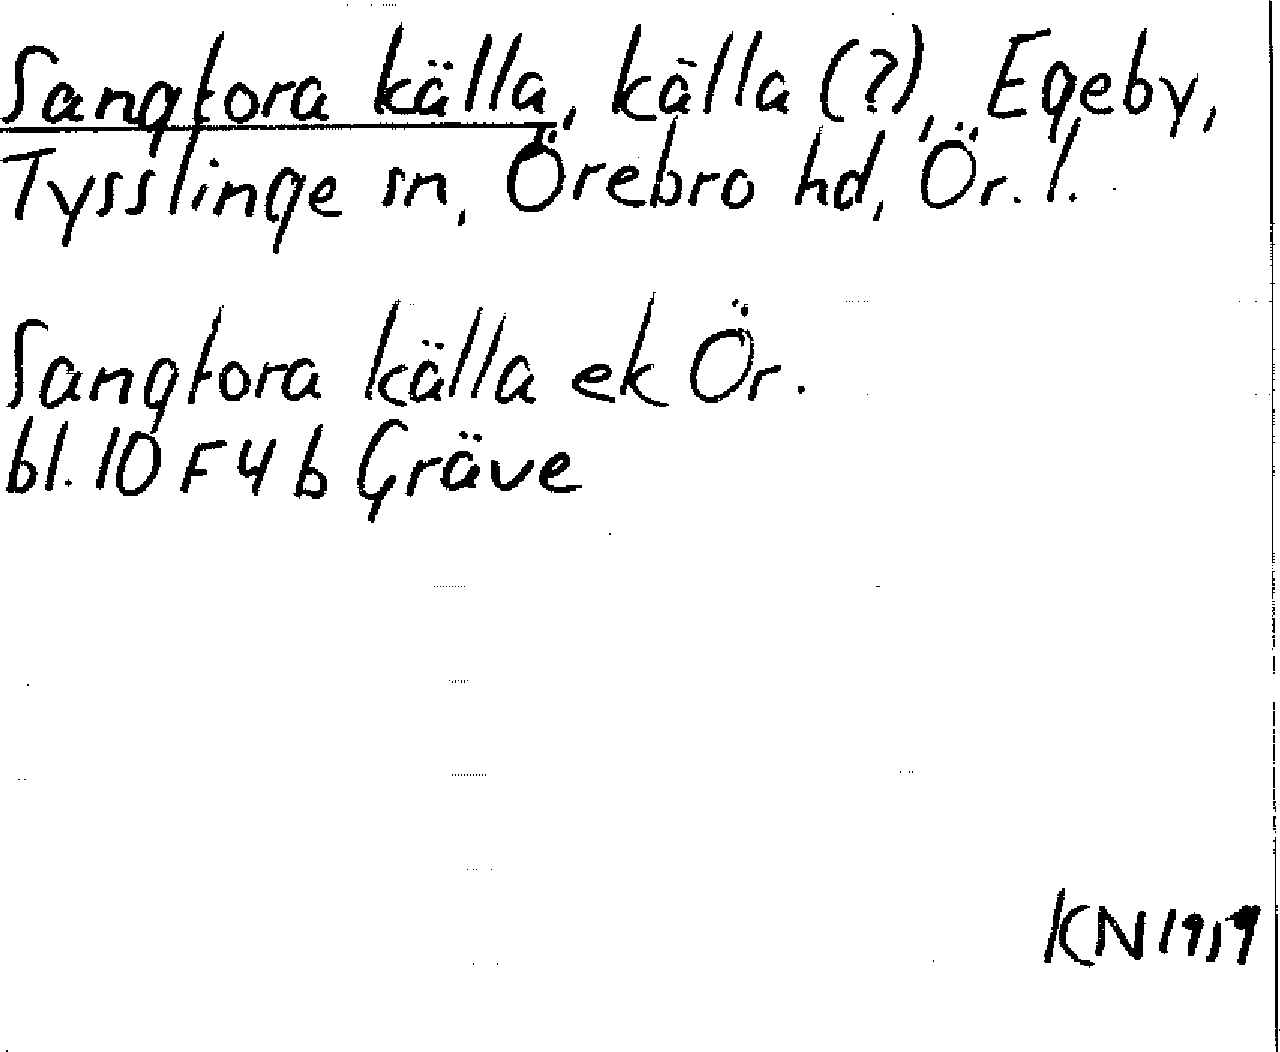 Sangtora källa, källa (?), Egeby,
Tysslinge sn, Örebro hd, Ör. l.
Sangtora källa ek Ör.
bl. 10 F 4 b Gräve
KN 1919